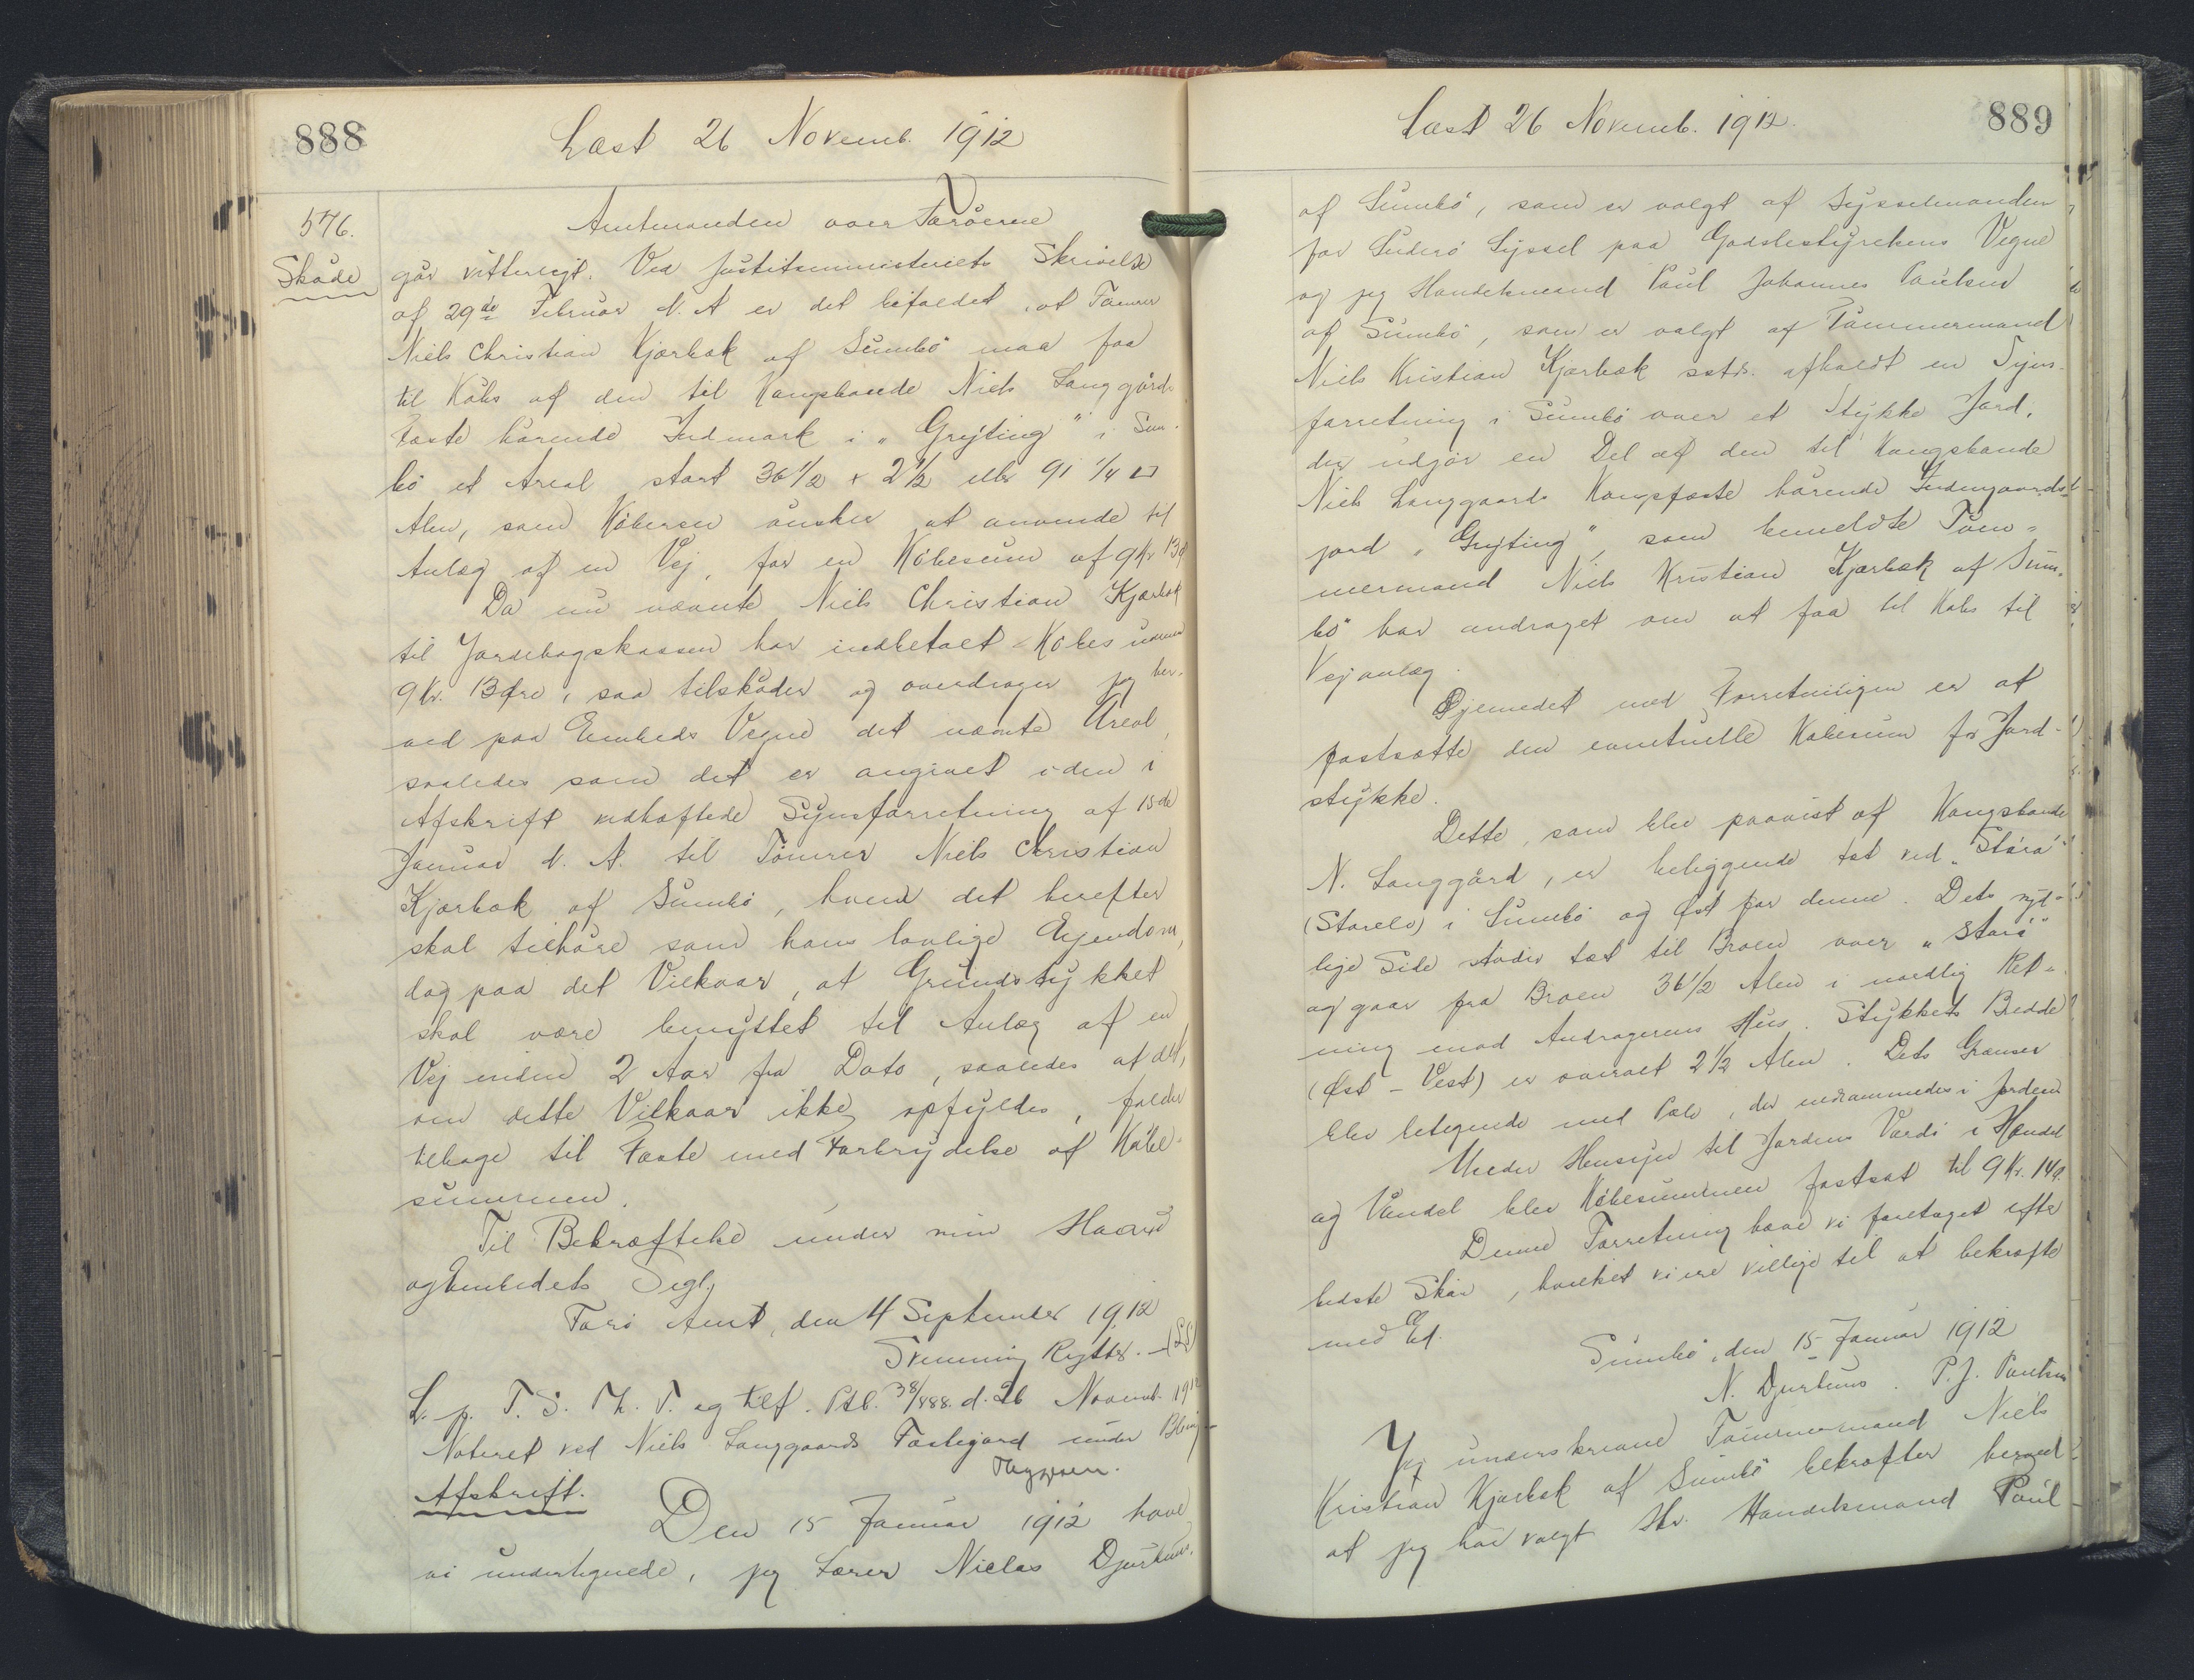 888
Læst 26 Novemb. 1912
576.
Skøde
Amtmanden over Færøerne
gør vitterligt. Ved Justitsministeriets Skrivelse
af 29de Februar d. A. er det bifaldet, at Tømrer
Niels Christian Kjærbæk af Sumbø maa faa
til Købs af den til Kongsbonde Niels Langgårds
Fæste hørende Indmark i „Grøjting" i Sum-
bø et Areal stort 36 1/2 x 2 1/2 eller 91 1/4 □
Alen, som Køberen ønsker at anvende til
Anlæg af en Vej, for en Købesum af 9 Kr 13 Ø
Da nu nævnte Niels Christian Kjærbæk
til Jordebogskassen har indbetalt Købesummen
9 Kr. 13 Øre, saa tilskøder og overdrager jeg her-
ved paa Embeds Vegne det nævnte Areal,
saaledes som det er angivet i den i
Afskrift vedhæftede Synsforretning af 15de
Januar d. A. til Tømrer Niels Christian
Kjærbæk af Sumbø, hvem det herefter
skal tilhøre som hans lovlige Ejendom,
dog paa det Vilkaar, at Grundstykket
skal være benyttet til Anlæg af en
Vej inden 2 Aar fra Dato, saaledes at det,
om dette Vilkaar ikke opfyldes, falder
tilbage til Fæste med Fortrydelse af Købe-
summen.
Til Bekræftelse under min Haand
og Embedets Segl.
Færø Amt, den 4 September 1912
Svenning Rytter. (LS)
L. p. T. S. Th. P. og tilf. Ptb. 38/888. d. 26 Novemb. 1912
Noteret ved Niels Langgaards Fæstegård under
Afskrift.
Den 15 Januar 1912 have
vi undertegnede, jeg Lærer Niclas Djurhuus,
889
Læst 26 Novemb. 1912.
af Sumbø, som er valgt af Sysselmanden
for Suderø Syssel paa Godsbestyrelsens Vegne
og jeg Handelsmand Poul Johannes Poulsen
af Sumbø, som er valgt af Tømmermand
Niels Kristian Kjærbæk sstds. afholdt en Syns-
forretning i Sumbø over et Stykke Jord,
der udgør en Del af den til Kongsbonde
Niels Langgaards Kongsfæste hørende Indengaards-
jord „Grøjting", som bemeldte Tøm-
mermand Niels Kristian Kjærbæk af Sum-
bø har andraget om at faa til Købs til
Vejanlæg.
Øjemedet med Forretningen er at
fastsætte den eventuelle Købesum for Jord-
stykke.
Dette, som blev paavist af Kongsbonde
N. Langgård, er beliggende tæt ved „Stórá"
(Storelv) i Sumbø og Øst for denne. Dets syd-
lige Side støder tæt til Broen over „Stórá"
og gaar fra Broen 36 1/2 Alen i nordlig Ret-
ning mod Andragerens Hus. Stykkets Bredde
(Øst - Vest) er overalt 2 1/2 Alen. Dets Grænser
blev betegnede med Pæle, der nedrammedes i Jorden.
Under Hensyn til Jordens Værdi i Handel
og Vandel blev Købesummen fastsat til 9 Kr. 14 Ø.
Denne Forretning have vi foretaget efter
bedste Skøn, hvilket vi ere villige til at bekræfte
med Ed.
Sumbø, den 15 Januar 1912
N. Djurhuus. P. J. Poulsen
Jeg underskrevne Tømmermand Niels
Kristian Kjærbæk af Sumbø bekræfter herved
at jeg har valgt Hr. Handelsmand Poul